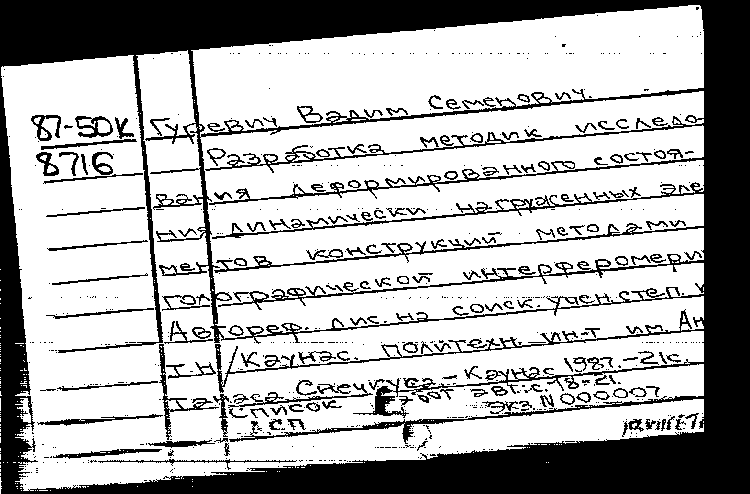 87-5DK Гуревич Вадим Семенович.
8716 Разработка методик исследо-
вания деформированного состоя-
ния динамически нагруженных эле
ментов конструкций методами
голографической интерферомери
Автореф. дис. на соиск. учен. степ. к
т.н / Каунас. политехн. ин-т им. Ан
танаса Снечкуса. - Каунас 1987. - 21с.
Список работ авт.: с. 18-21.
ДСП Экз N000007